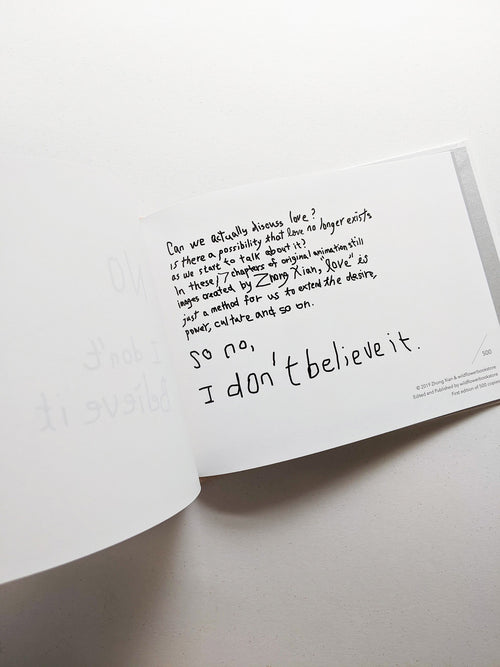 Can we actually discuss love?
is there a possibility that love no longer exists
as we start to talk about it?
In these 17 chapters of original animation still
images created by Zhong Xian, "love" is
just a method for us to extend the desire,
power, culture and so on.
so no,
I don't believe it.
/500
© 2019 Zhong Xian & wildflowerbookstore
Edited and Published by wildflowerbookstore
First edition of 500 copies
NO
I don't
believe it